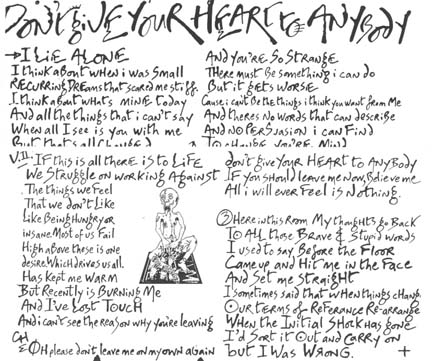 Don't Give Your Heart to Anybody
→ I Lie Alone
I think about when i was small
Recurring Dreams that scared me stiff
I think about what's mine today
And all the things that i can't say
When all I see is you with me
But that's all changed
And you're so strange
There must be something i can do
But it gets worse
Cause i can't be the things i think you want from me
And theres no words that can describe
And no persuasion i can find
To change you're mind
V.II. If this is all there is to Life
We struggle on working against
The things we feel
That we don't like
Like being hungry or
insane. Most of us fail
High above these is one
desire. Which drives us all.
Has kept me warm
But recently is burning me
And I've lost touch
And i can't see the reason why you're leaving
CH
Oh please don't leave me on my own again
don't give your heart to anybody
If you should leave me now, Believe me
All i will ever feel is nothing.
② Here in this room my thoughts go back
To all those Brave & Stupid words
I used to say before the floor
Came up and hit me in the face
And set me straight
I sometimes said that when things change
Our terms of referance re-arrange
When the initial shock has gone
I'd sort it out and carry on
but I was wrong. +